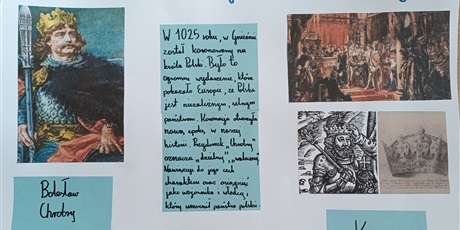 W 1025 roku, w Gnieźnie
został koronowany na
króla Polski. Było to
ogromne wydarzenie, które
pokazało Europie, że Polska
jest niezależnym, silnym
państwem. Koronacja otworzyła
nową epokę w naszej
historii. Przydomek "Chrobry"
oznacza "dzielny", "waleczny".
Nawiązuje do jego cech
charakteru oraz osiągnięć
jako wojownika i władcy,
który umocnił państwo polskie
Bolesław
Chrobry